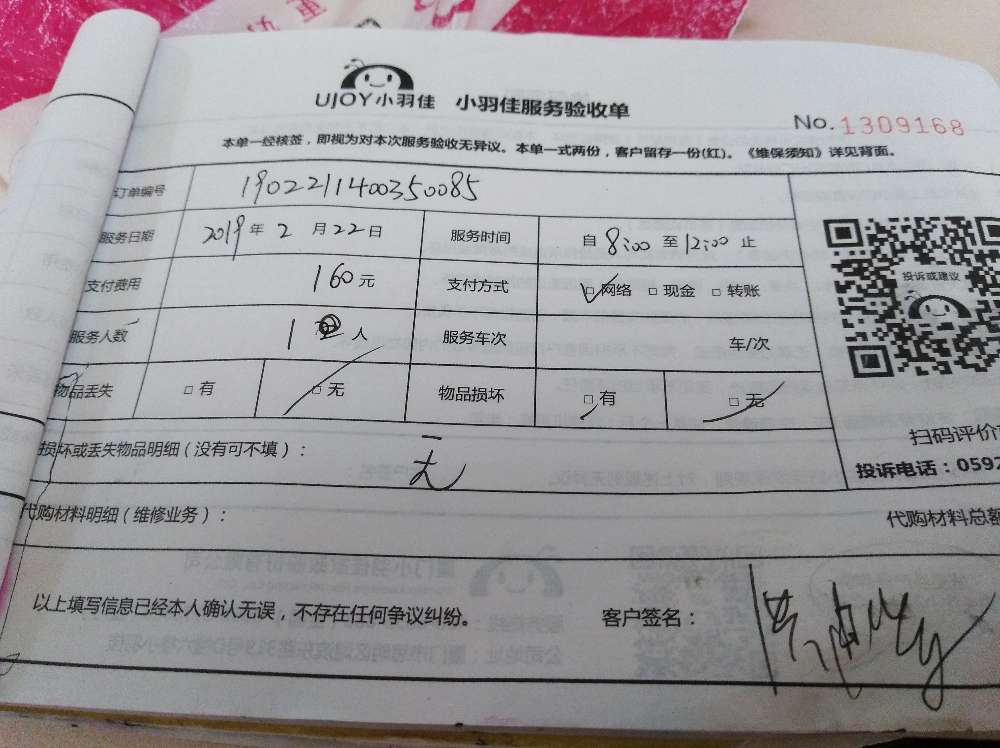 UJOY小羽佳 小羽佳服务验收单
No. 1309168
本单一经核签，即视为对本次服务验收无异议。本单一式两份，客户留存一份(红)。《维保须知》详见背面。
订单编号 1902211400350085
服务日期 2019年 2 月 22 日 服务时间 自 8:00 至 12:00 止
支付费用 160 元 支付方式 □网络 □现金 □转账
投诉或建议
服务人数 1 人 服务车次 车/次
物品丢失 □有 □无 物品损坏 □有 □无
扫码评价
损坏或丢失物品明细（没有可不填）： 无
投诉电话：0592
代购材料明细（维修业务）： 代购材料总额
以上填写信息已经本人确认无误，不存在任何争议纠纷。 客户签名：